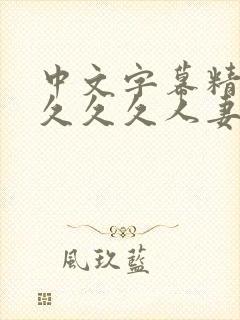 中文字幕精
久久久人妻
風玖藍